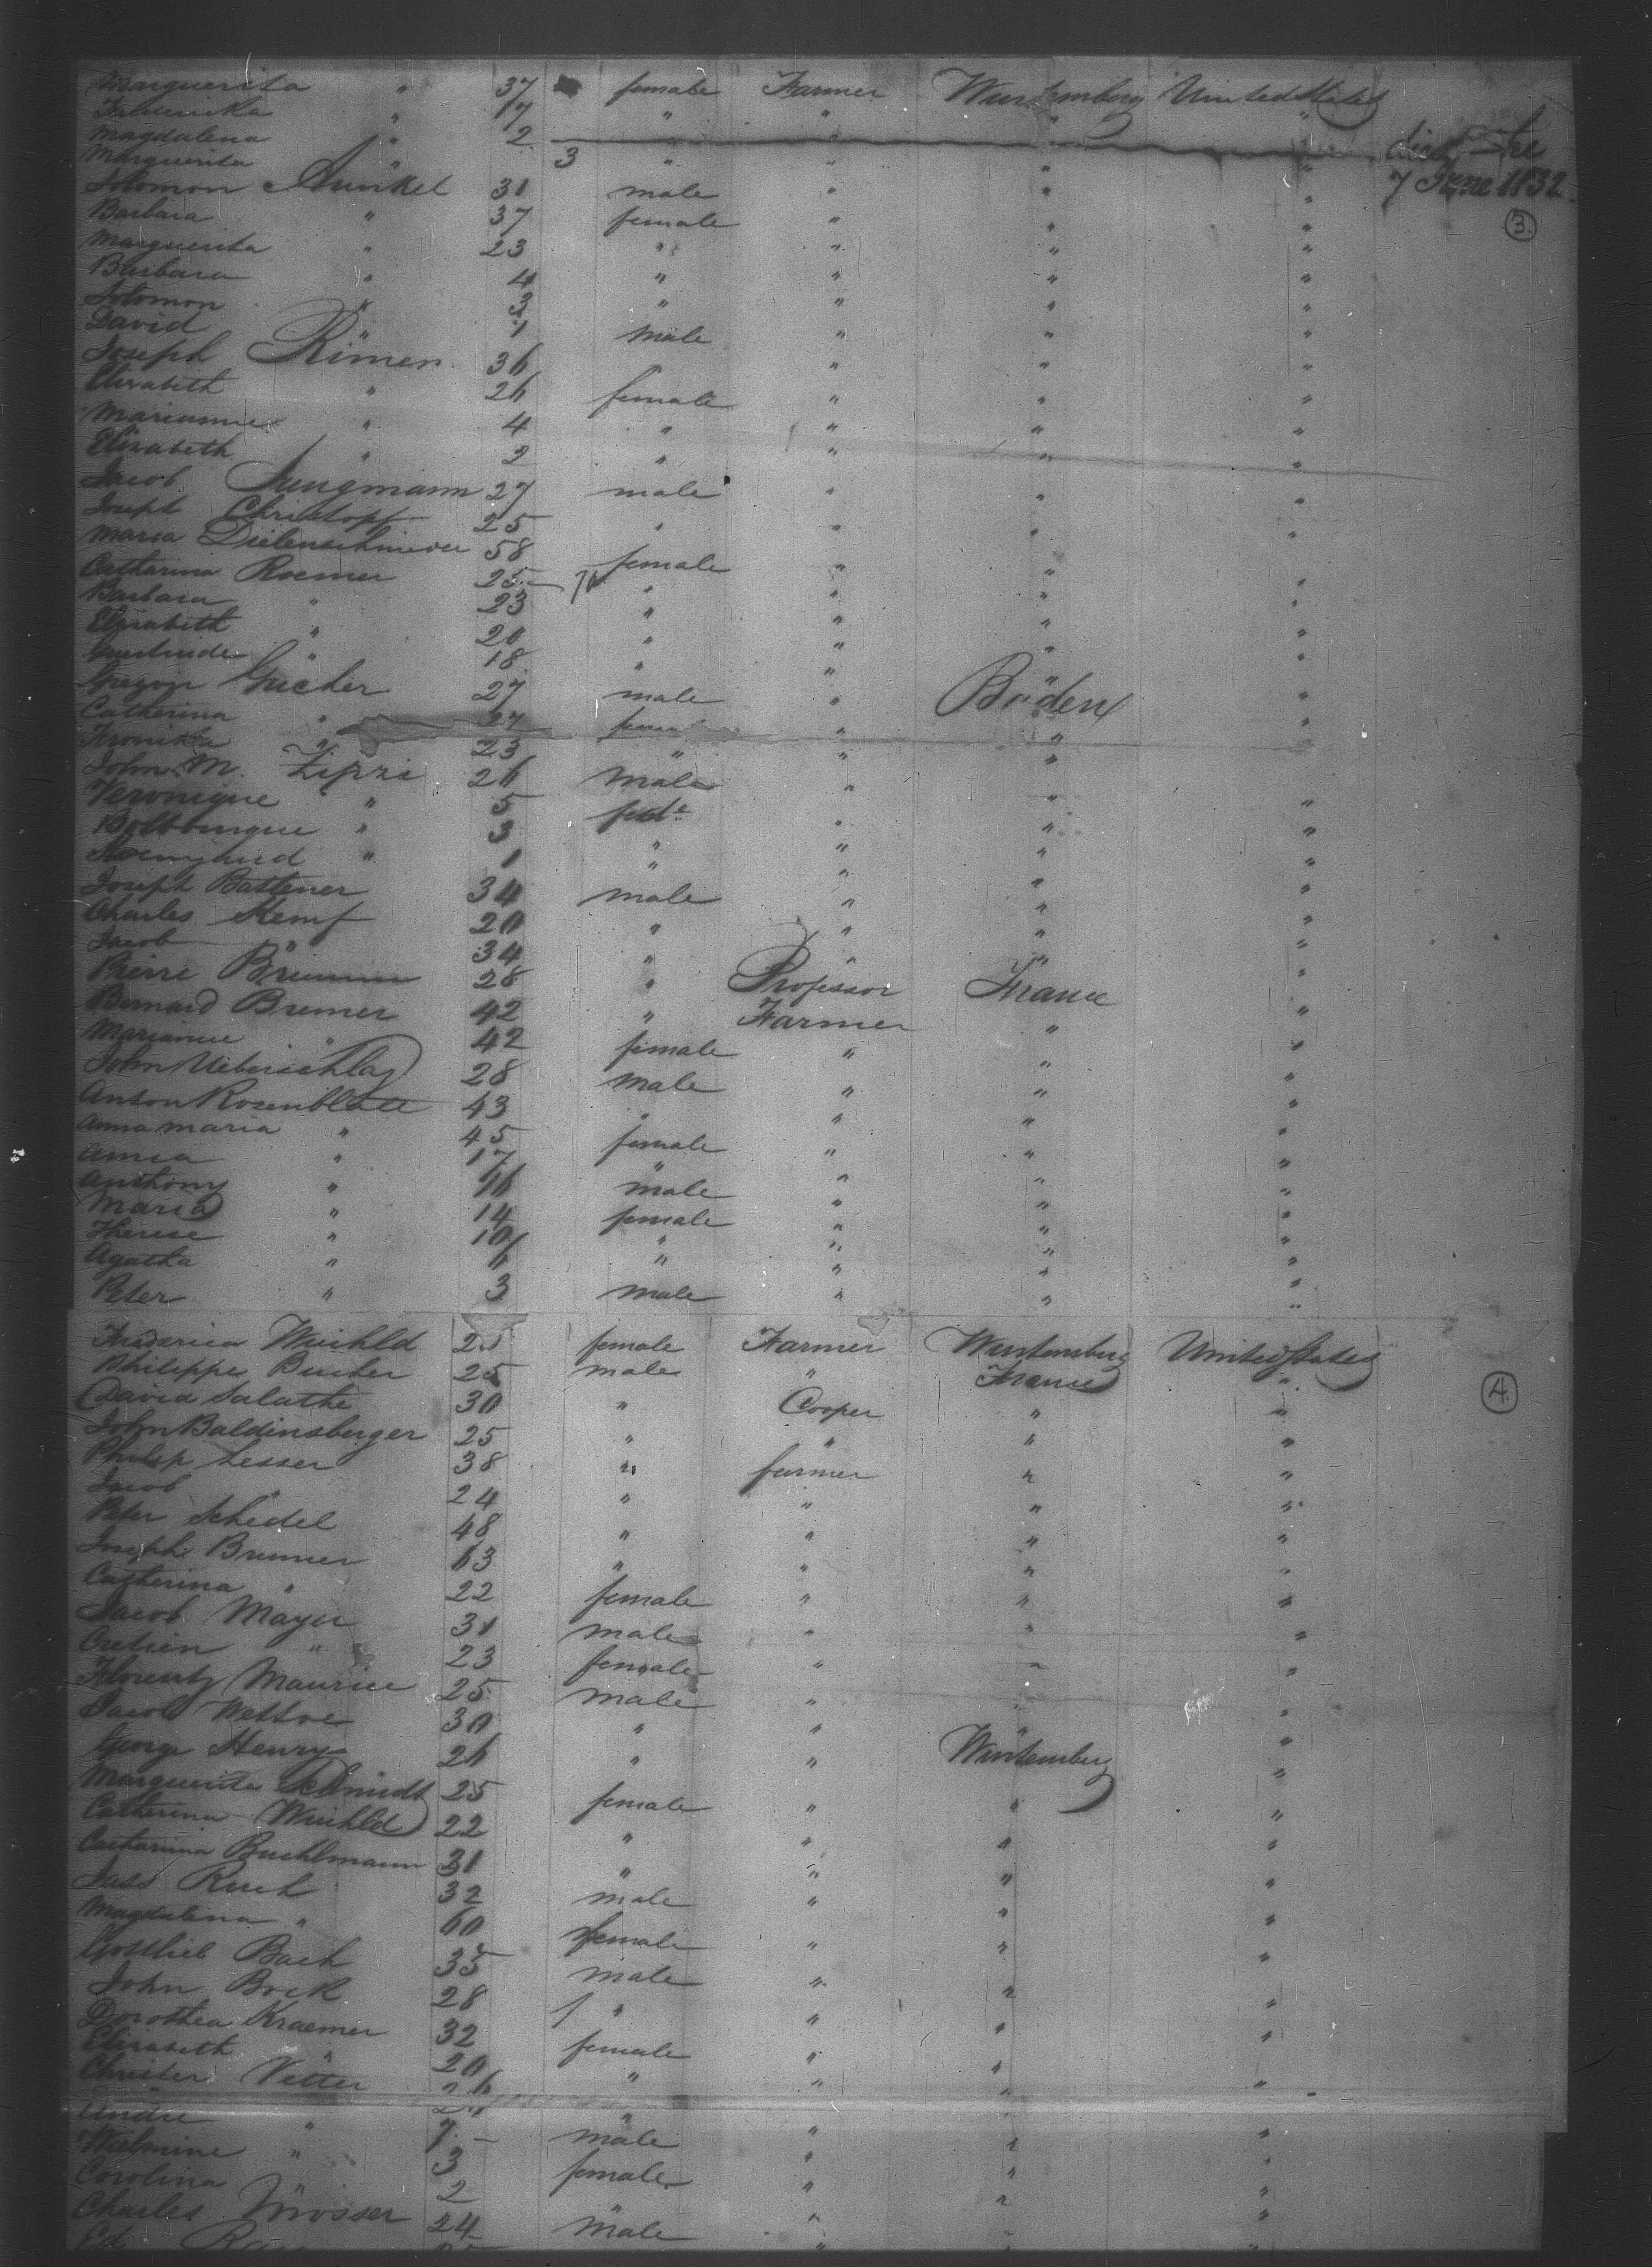 Marguerita " 37 female Farmer Wurtemberg United States
Fredericka " 17 " " " "
Magdalena " 2 " " " "
Marguerita " 3 " " " " died the 7 June 1832
Solomon Kunkel 31 male " " "
Barbara " 37 female " " " 3.
Marguerita " 23 " " " "
Barbara " 4 " " " "
Solomon " 3 " " " "
David " 1 male " " "
Joseph Rimer 36 " " "
Elizabeth " 26 female " " "
Marianne " 4 " " " "
Elizabeth " 2 " " " "
Jacob Jungmann 27 male " " "
Joseph Christopf 25 " " " "
Maria 58 female " " "
Catharina Roemer 25 " " " "
Barbara " 23 " " " "
Elizabeth " 20 " " " "
Guertrude " 18 " " " "
Gregoir Guether 27 male " Baden "
Catherina " 27 female " " "
Fronika " 23 " " " "
John M. Zipzi 26 male " " "
Veronique " 5 " " "
" 3 " " " "
" 1 " " " "
Joseph Battener 34 male " " "
Charles Kemf 20 " " " "
Jacob " 34 " " " "
Pierre Brumm 28 " Professor France "
Bernard Bremer 42 " Farmer " "
Marianne " 42 female " " "
John Ueberschlag 28 male " " "
Anton Rosenblatt 43 " " " "
Anna Maria " 45 female " " "
Anna " 17 " " " "
Anthony " 16 male " " "
Maria " 14 female " " "
Therese " 10 " " " "
Agatha " 6 " " " "
Peter " 3 male " " "
Frederica Wuihld 25 female Farmer Wurtemberg United States
Philippe Bucher 25 male " France "
David Salathe 30 " Cooper " " 4.
John Baldinsberger 25 " " " "
Philip Lesser 38 " farmer " "
Jacob " 24 " " " "
Peter Schedel 48 " " " "
Joseph Brunner 63 " " " "
Catherina " 22 female " " "
Jacob Mayer 31 male " " "
Cretien " 23 female " " "
Florentz Maurice 25 male " " "
Jacob Wettoe 30 " " " "
George Henry 26 " " Wurtemberg "
Marguerita Schmidt 25 female " " "
Catherina Wuihld 22 " " " "
Catharina Buchlmann 31 " " " "
Ruch 32 male " " "
Magdalena " 60 female " " "
Gottlieb Bach 35 male " " "
John Bock 28 " " " "
Dorothea Kraemer 32 female " " "
Elizabeth " 20 " " " "
Christer Vetter 26 " " " "
Andre " 7 male " " "
Wielmine " 3 female " " "
Carolina " 2 " " " "
Charles Mosser 24 male " " "